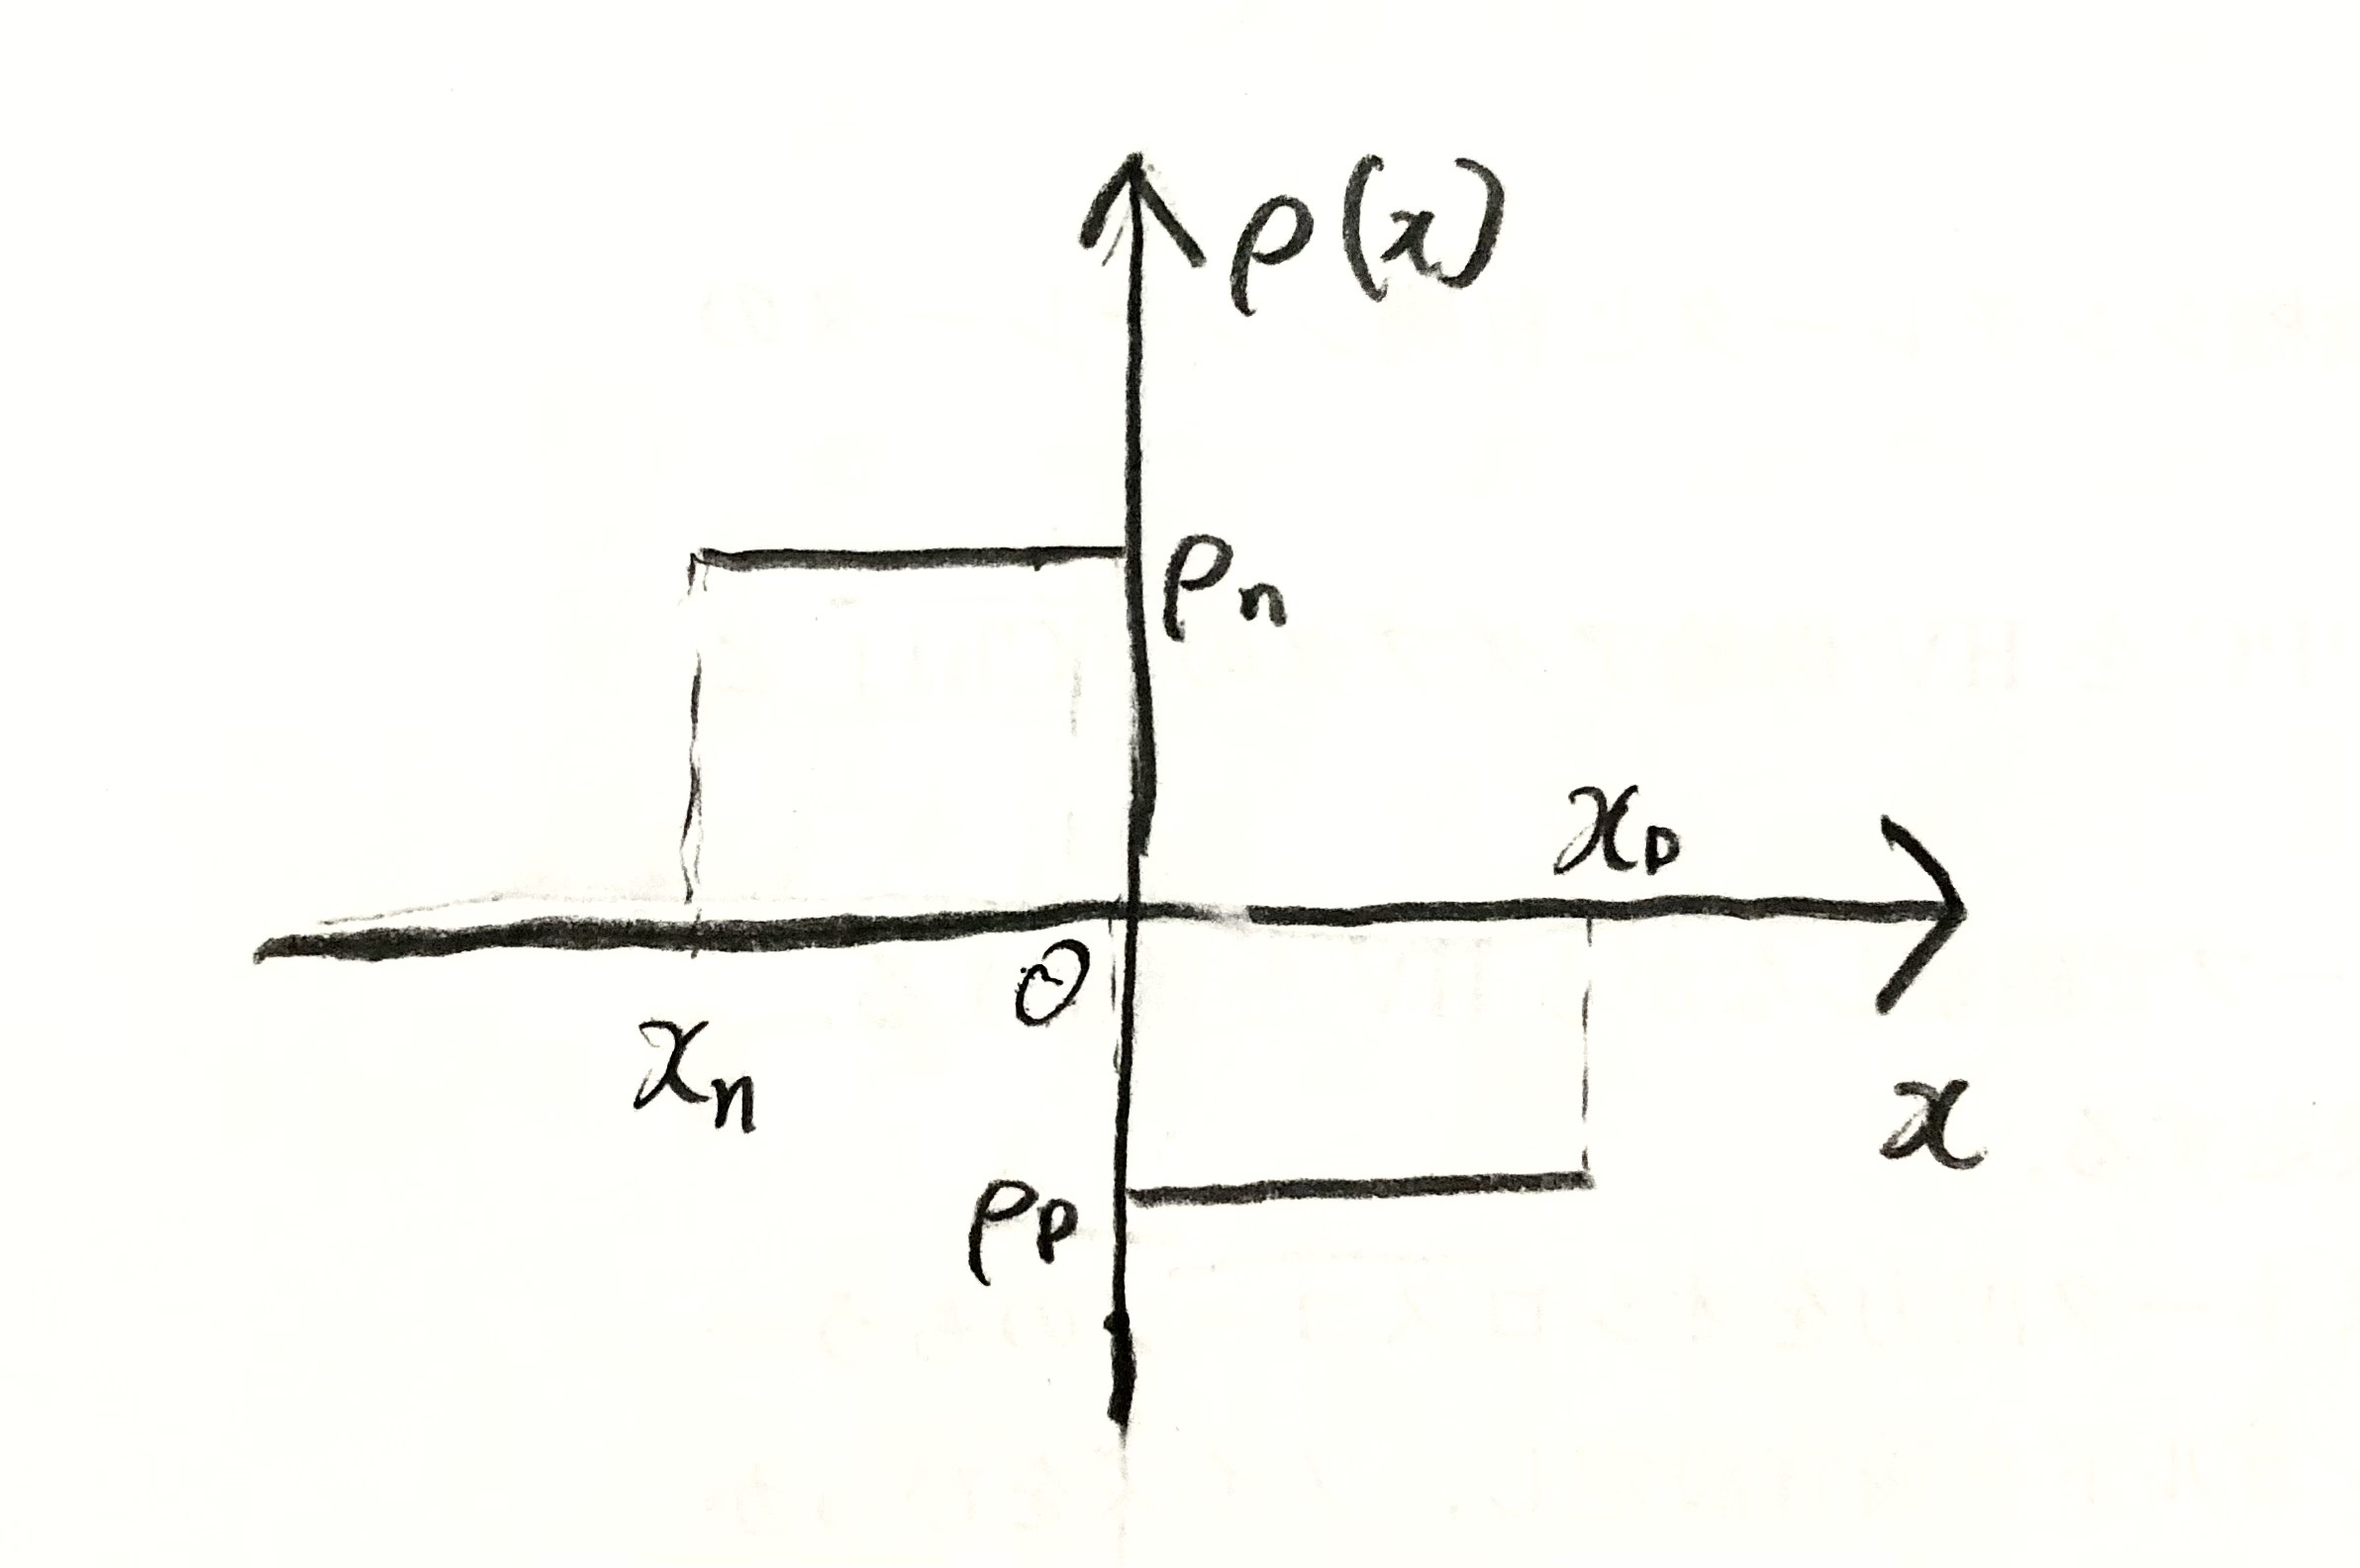 ρ(x)
ρn
xp
O
xn
x
ρp